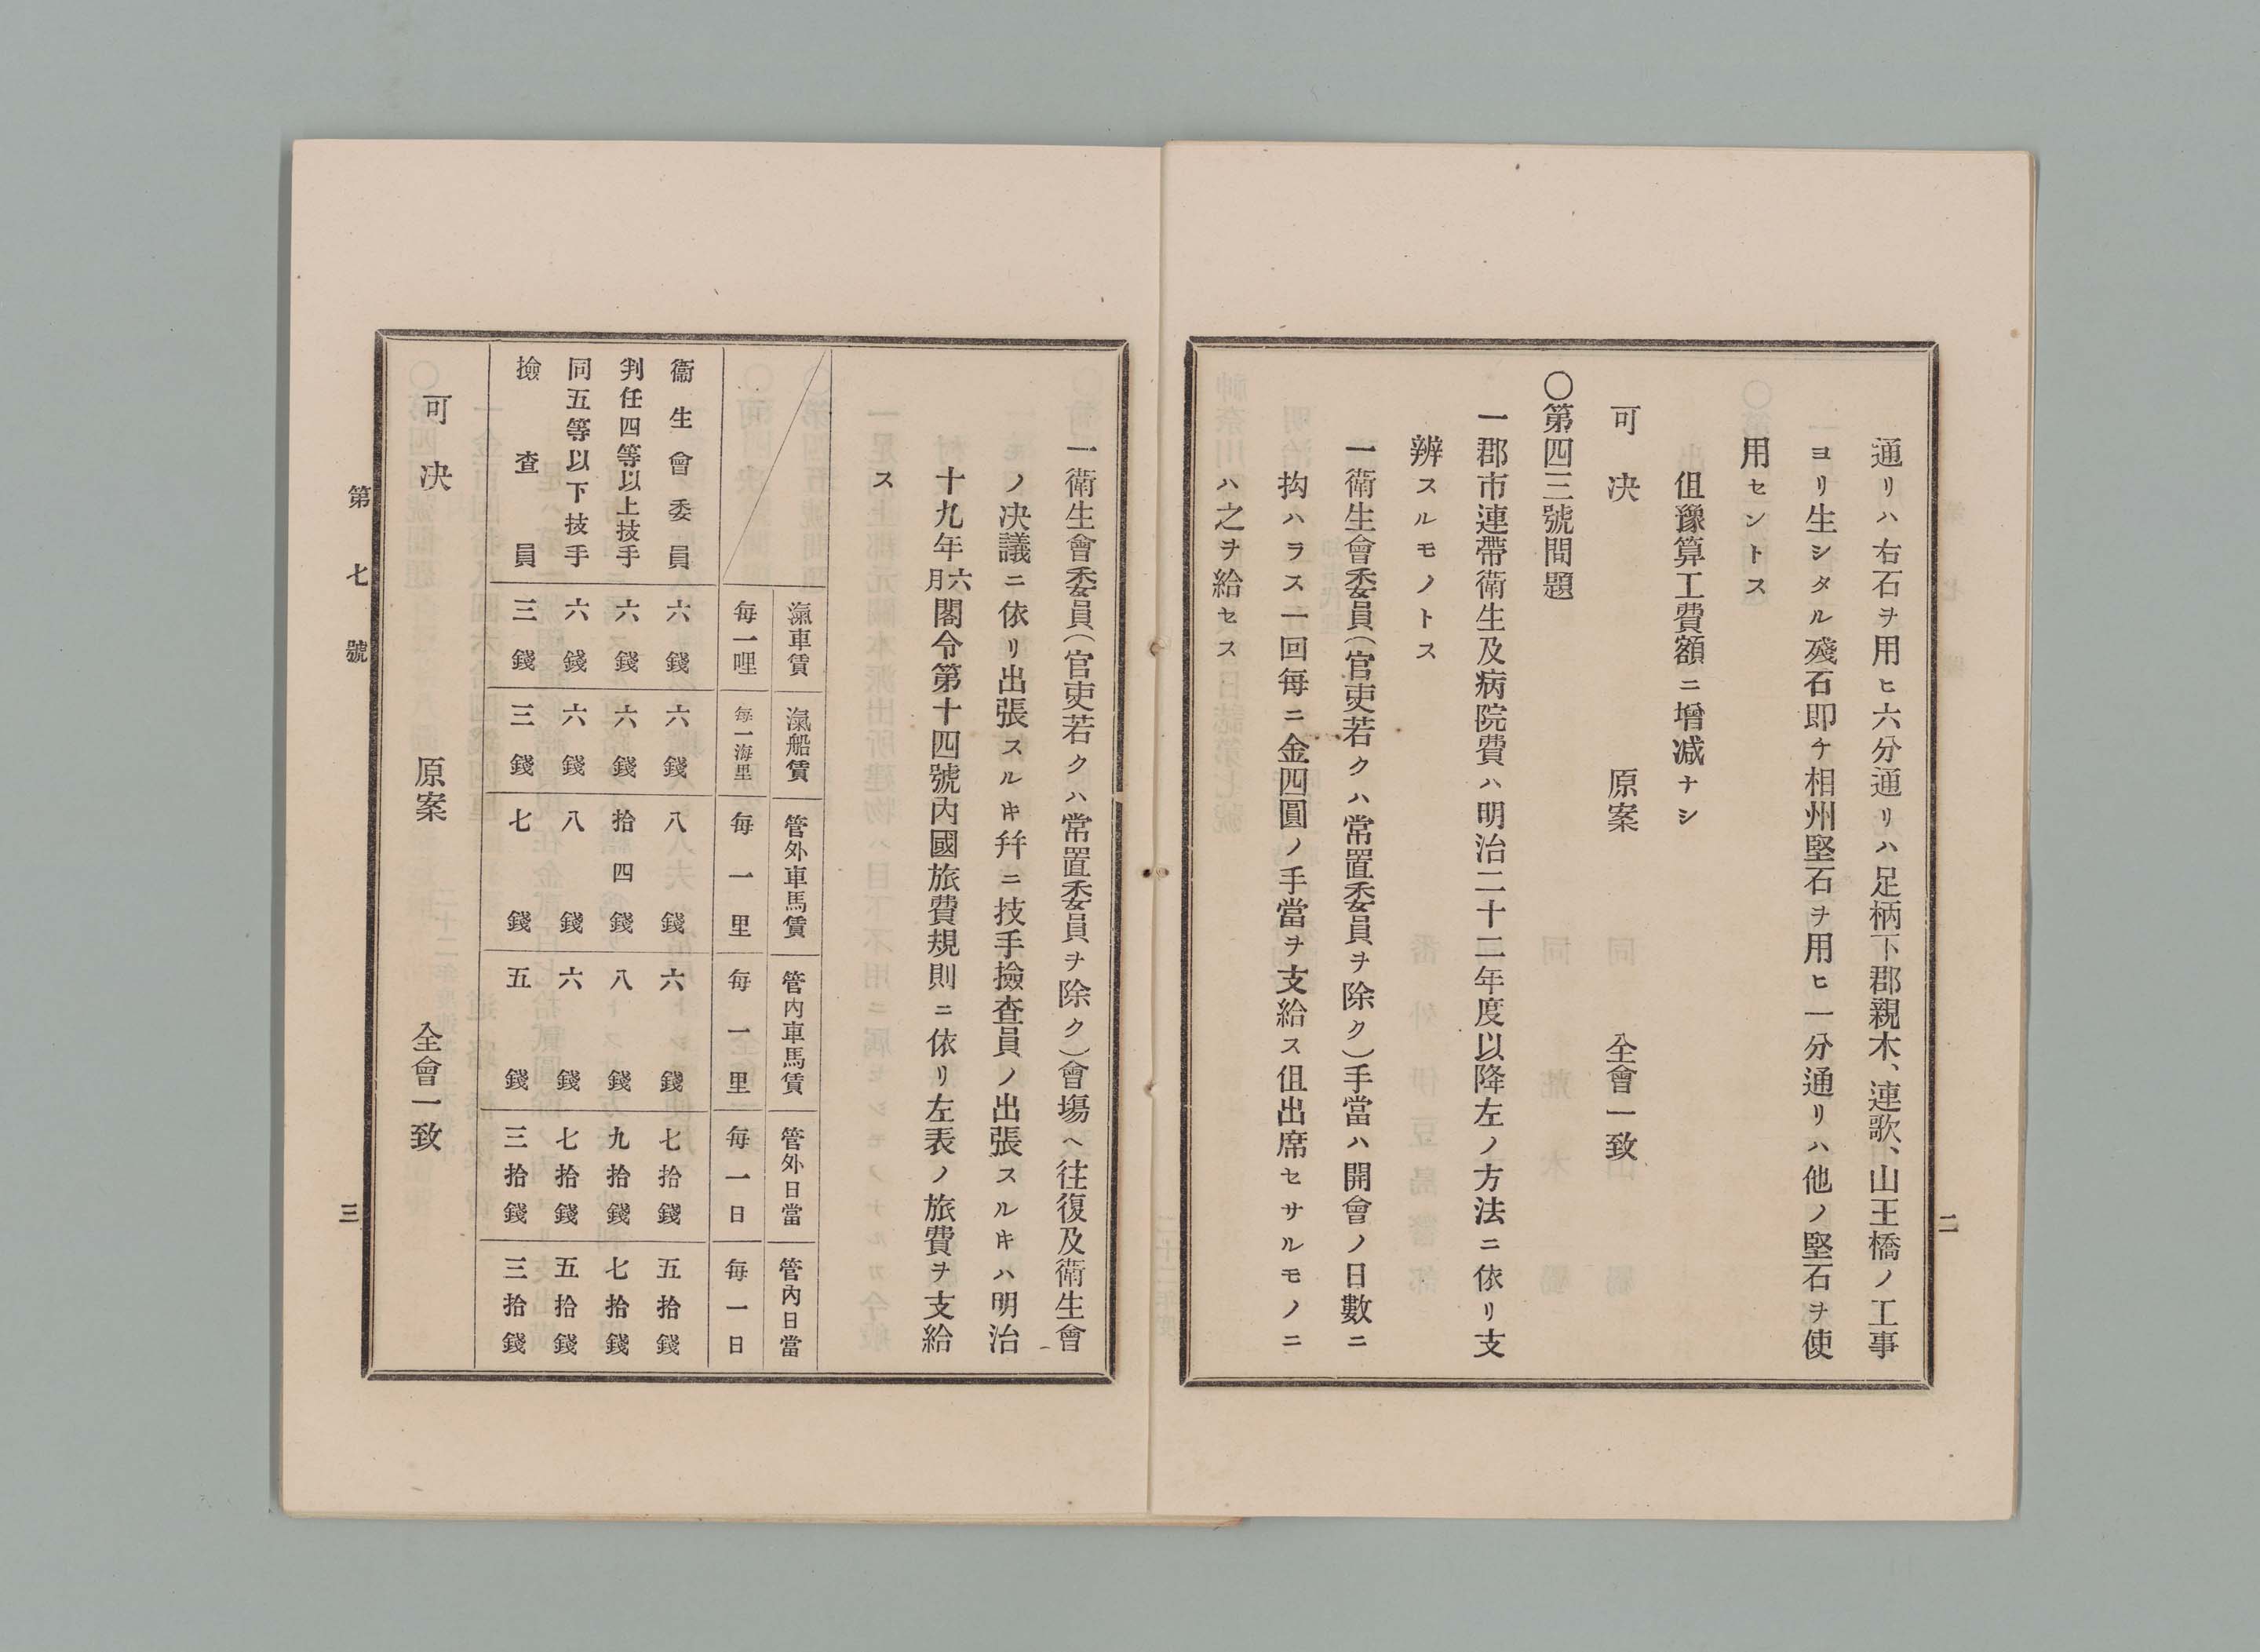 二
通リハ右石ヲ用ヒ六分通リハ足柄下郡親木、連歌、山王橋ノ工事
ヨリ生シタル殘石即チ相州堅石ヲ用ヒ一分通リハ他ノ堅石ヲ使
用セントス
伹豫算工費額ニ增减ナシ
可決 原案 全會一致
〇第四三號問題
一郡市連帶衛生及病院費ハ明治二十二年度以降左ノ方法ニ依リ支
辨スルモノトス
一衛生會委員(官吏若クハ常置委員ヲ除ク)手當ハ開會ノ日數ニ
抅ハラス一回毎ニ金四圓ノ手當ヲ支給ス伹出席セサルモノニ
ハ之ヲ給セス
一衛生會委員(官吏若クハ常置委員ヲ除ク)會塲ヘ往復及衛生會
ノ決議ニ依リ出張スルキ幷ニ技手撿査員ノ出張スルキハ明治
十九年六月閣令第十四號內國旅費規則ニ依リ左表ノ旅費ヲ支給
ス
滊車賃 滊船賃 管外車馬賃 管内車馬賃 管外日當 管內日當
每一哩 每一海里 每一里 每一里 每一日 每一日
衞生會委員 六錢 六錢 八錢 六錢 七拾錢 五拾錢
判任四等以上技手 六錢 六錢 拾四錢 八錢 九拾錢 七拾錢
同五等以下技手 六錢 六錢 八錢 六錢 七拾錢 五拾錢
撿査員 三錢 三錢 七錢 五錢 三拾錢 三拾錢
可決 原案 全會一致
第七號 三